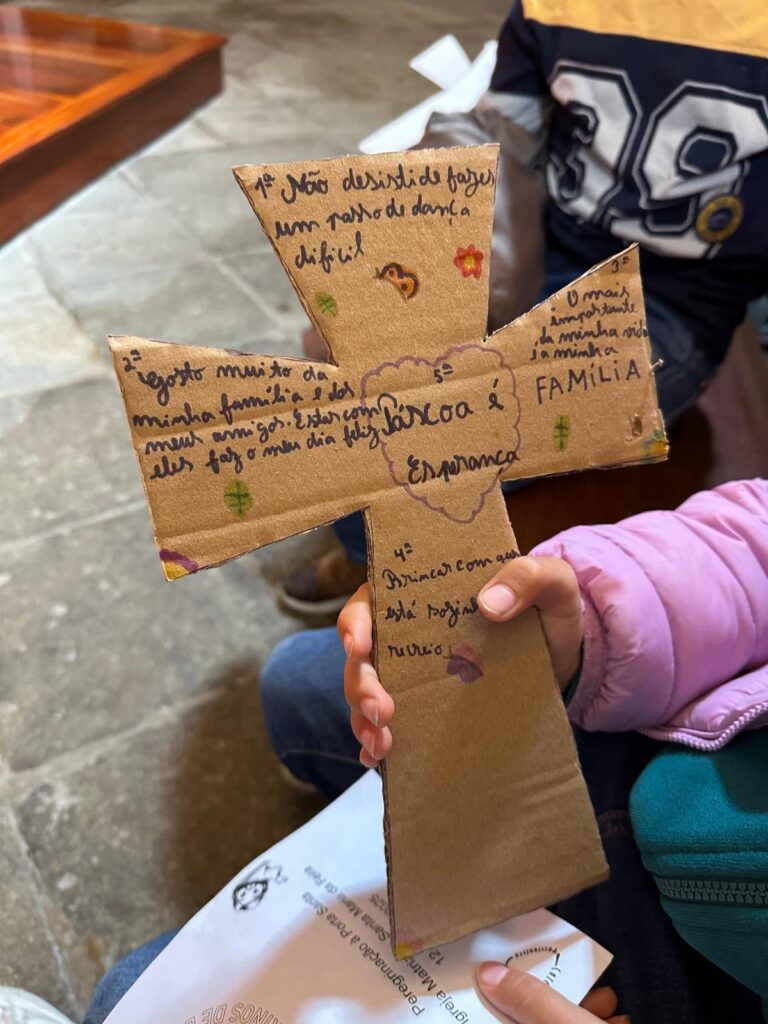 1ª Não desisti de fazer
um passo de dança
difícil
2ª
Gosto muito da
minha família e dos
meus amigos. Estar com
eles faz o meu dia feliz
3ª
O mais
importante
da minha vida
é a minha
FAMÍLIA
5ª
Páscoa é
Esperança
4ª
Brincar com quem
está sozinho
recreio
39
Peregrinação à Porta Santa
Igreja Matriz
Santa Maria da Feira
12
2025